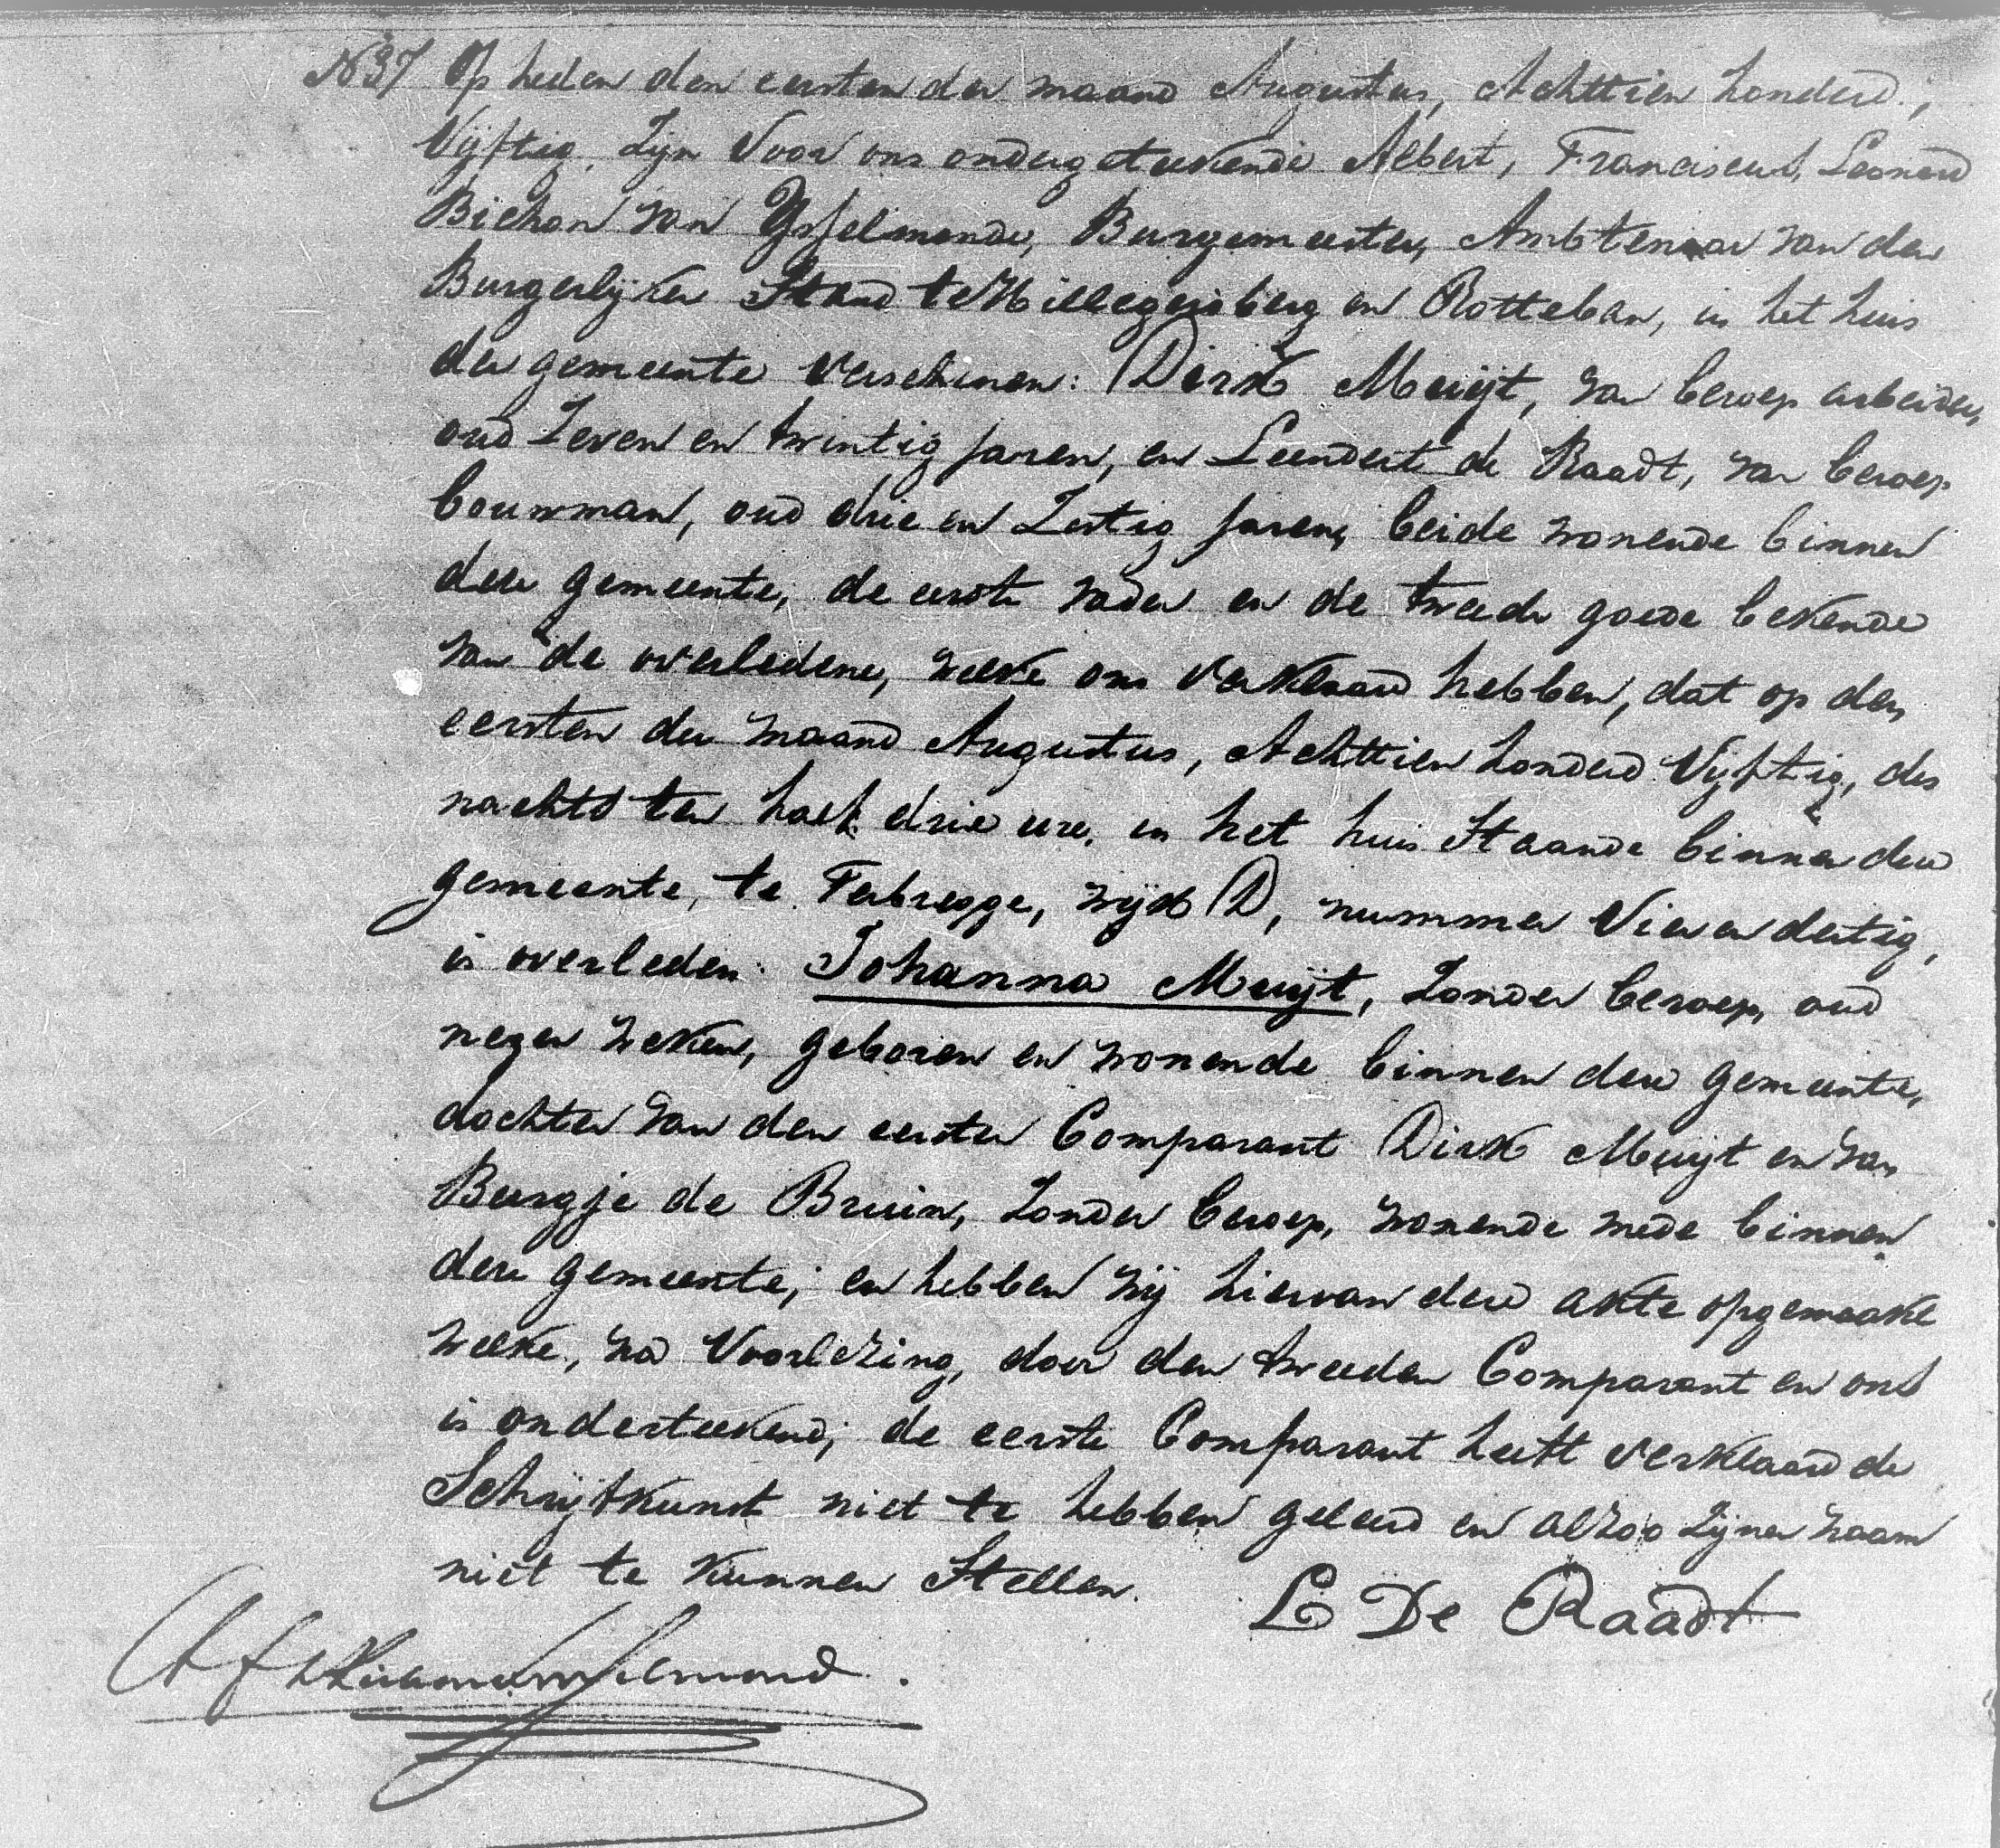 No 37 Op heden den eersten der maand Augustus, Achttien honderd,
Vijftig, Zijn Voor ons ondergeteekende Albert, Franciscus, Leonard
Bichon van IJsselmonde, Burgemeester, Ambtenaar van den
Burgerlijken Stand te Hillegersberg en Rotteban, in het huis
der gemeente verschenen: Dirk Muijt, van beroep arbeider,
oud Zeven en twintig jaren, en Leendert de Raadt, van beroep
bouwman, oud drie en Zestig jaren, beide wonende binnen
deze gemeente, de eerste vader en de tweede goede bekende
van de overledene, welke ons verklaard hebben, dat op den
eersten der maand Augustus, Achttien honderd Vijftig, des
nachts ten half drie ure, in het huis Staande binnen deze
gemeente, te Terbregge, wijk D, nummer Vier en dertig,
is overleden: Johanna Muijt, Zonder beroep, oud
negen weken, geboren en wonende binnen deze gemeente,
dochter van den eersten Comparant Dirk Muijt en van
Burgje de Bruin, Zonder beroep, wonende mede binnen
deze gemeente; en hebben wij hiervan deze akte opgemaakt
welke, na Voorlezing, door den tweeden Comparant en ons
is onderteekend; de eerste Comparant heeft verklaard de
Schrijfkunst niet te hebben geleerd en alzoo Zijnen naam
niet te kunnen Stellen.
L De Raadt